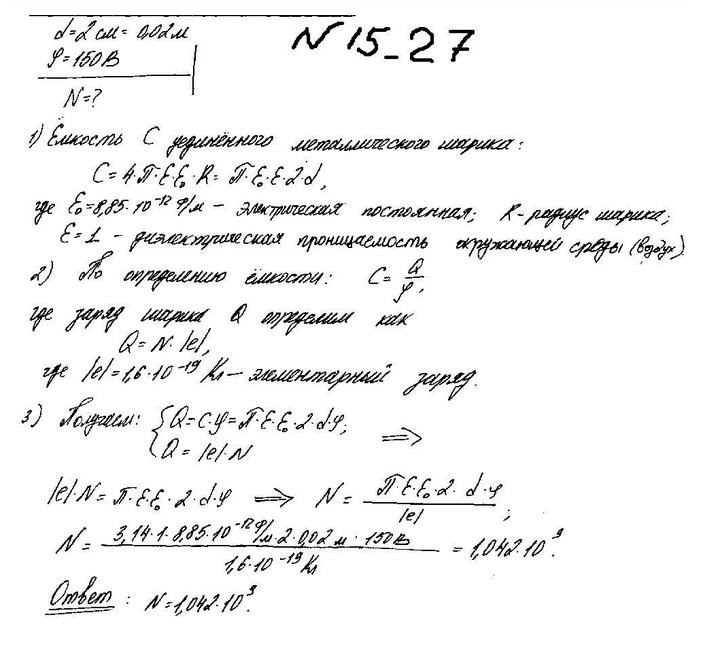 d=2 см=0,02м
φ=150В
N=?
N15-27
1) Ёмкость C уединённого металлического шарика:
C=4·π·ε·ε₀·R=π·ε₀·ε·2·d,
где ε₀=8,85·10⁻¹² Ф/м – электрическая постоянная; R-радиус шарика;
ε=1 – диэлектрическая проницаемость окружающей среды (воздух)
2) По определению ёмкости: C=Q/φ,
где заряд шарика Q определим как
Q=N·|e|,
где |e|=1,6·10⁻¹⁹ Кл – элементарный заряд.
3) Получаем: {Q=C·φ=π·ε·ε₀·2·d·φ;
Q=|e|·N ⇒
|e|·N=π·ε·ε₀·2·d·φ ⇒ N=π·ε·ε₀·2·d·φ/|e|;
N=3,14·1·8,85·10⁻¹²Ф/м·2·0,02м·150В/1,6·10⁻¹⁹Кл=1,042·10⁹.
Ответ: N=1,042·10⁹.